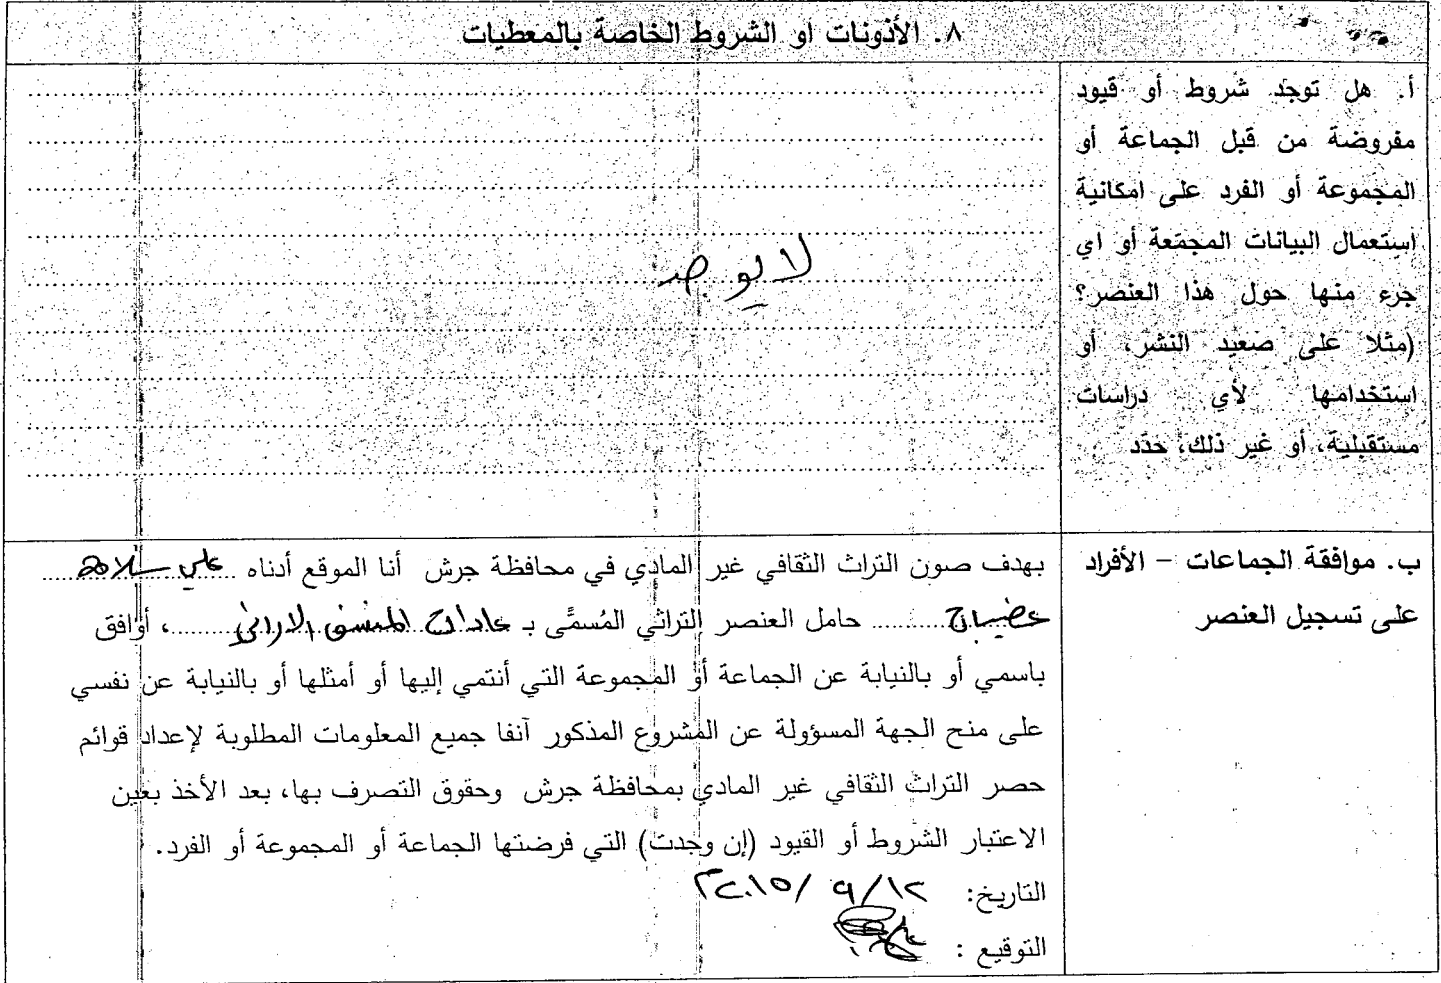 ٨. الأذونات او الشروط الخاصة بالمعطيات
أ. هل توجد شروط أو قيود
مفروضة من قبل الجماعة أو
المجموعة أو الفرد على امكانية
استعمال البيانات المجمّعة أو اي
جزء منها حول هذا العنصر؟
(مثلا على صعيد النشر، أو
استخدامها لأي دراسات
مستقبلية، أو غير ذلك، حدّد
لا يوجد
ب. موافقة الجماعات – الأفراد
على تسجيل العنصر
بهدف صون التراث الثقافي غير المادي في محافظة جرش أنا الموقع أدناه علي سلامه
حامل العنصر التراثي المُسمَّى بـ ، أوافق
باسمي أو بالنيابة عن الجماعة أو المجموعة التي أنتمي إليها أو أمثلها أو بالنيابة عن نفسي
على منح الجهة المسؤولة عن المشروع المذكور آنفا جميع المعلومات المطلوبة لإعداد قوائم
حصر التراث الثقافي غير المادي بمحافظة جرش وحقوق التصرف بها، بعد الأخذ بعين
الاعتبار الشروط أو القيود (إن وجدت) التي فرضتها الجماعة أو المجموعة أو الفرد.
التاريخ: ١٢/ ٩ /٢٠١٥م
التوقيع :